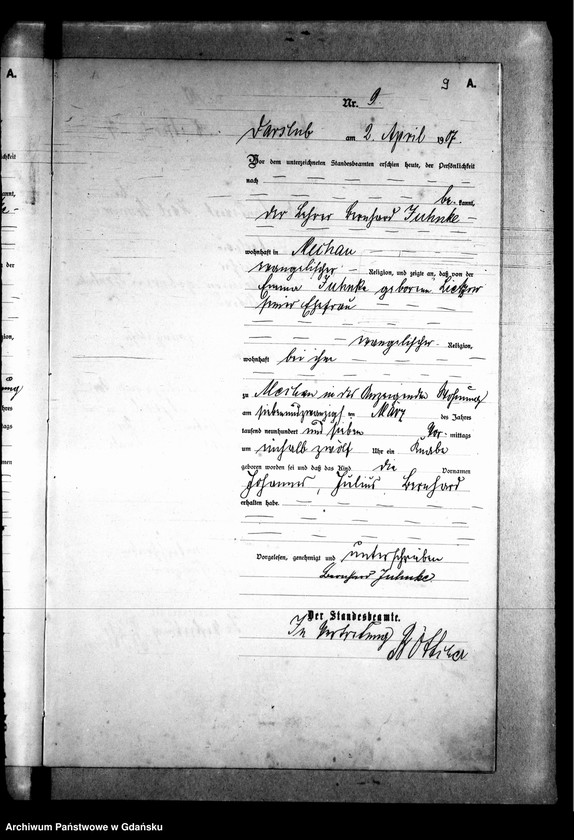 A.
9 A.
Nr. 9
Darslub am 2. April 1907.
Vor dem unterzeichneten Standesbeamten erschien heute, der Persönlichkeit
nach
be kannt,
der Lehrer Bernhard Juhnke
wohnhaft in Mechau
evangelischer Religion, und zeigte an, daß von der
Emma Juhnke geborenen Lietzow
seiner Ehefrau
evangelischer Religion,
wohnhaft bei ihm
zu Mechau in des Anzeigenden Wohnung
am siebenundzwanzigsten März des Jahres
tausend neunhundert und sieben Vor mittags
um einhalb zwölf Uhr ein Knabe
geboren worden sei und daß das Kind die Vornamen
Johannes, Julius, Bernhard
erhalten habe.
Vorgelesen, genehmigt und unterschrieben
Bernhard Juhnke
Der Standesbeamte.
In Vertretung
Archiwum Państwowe w Gdańsku